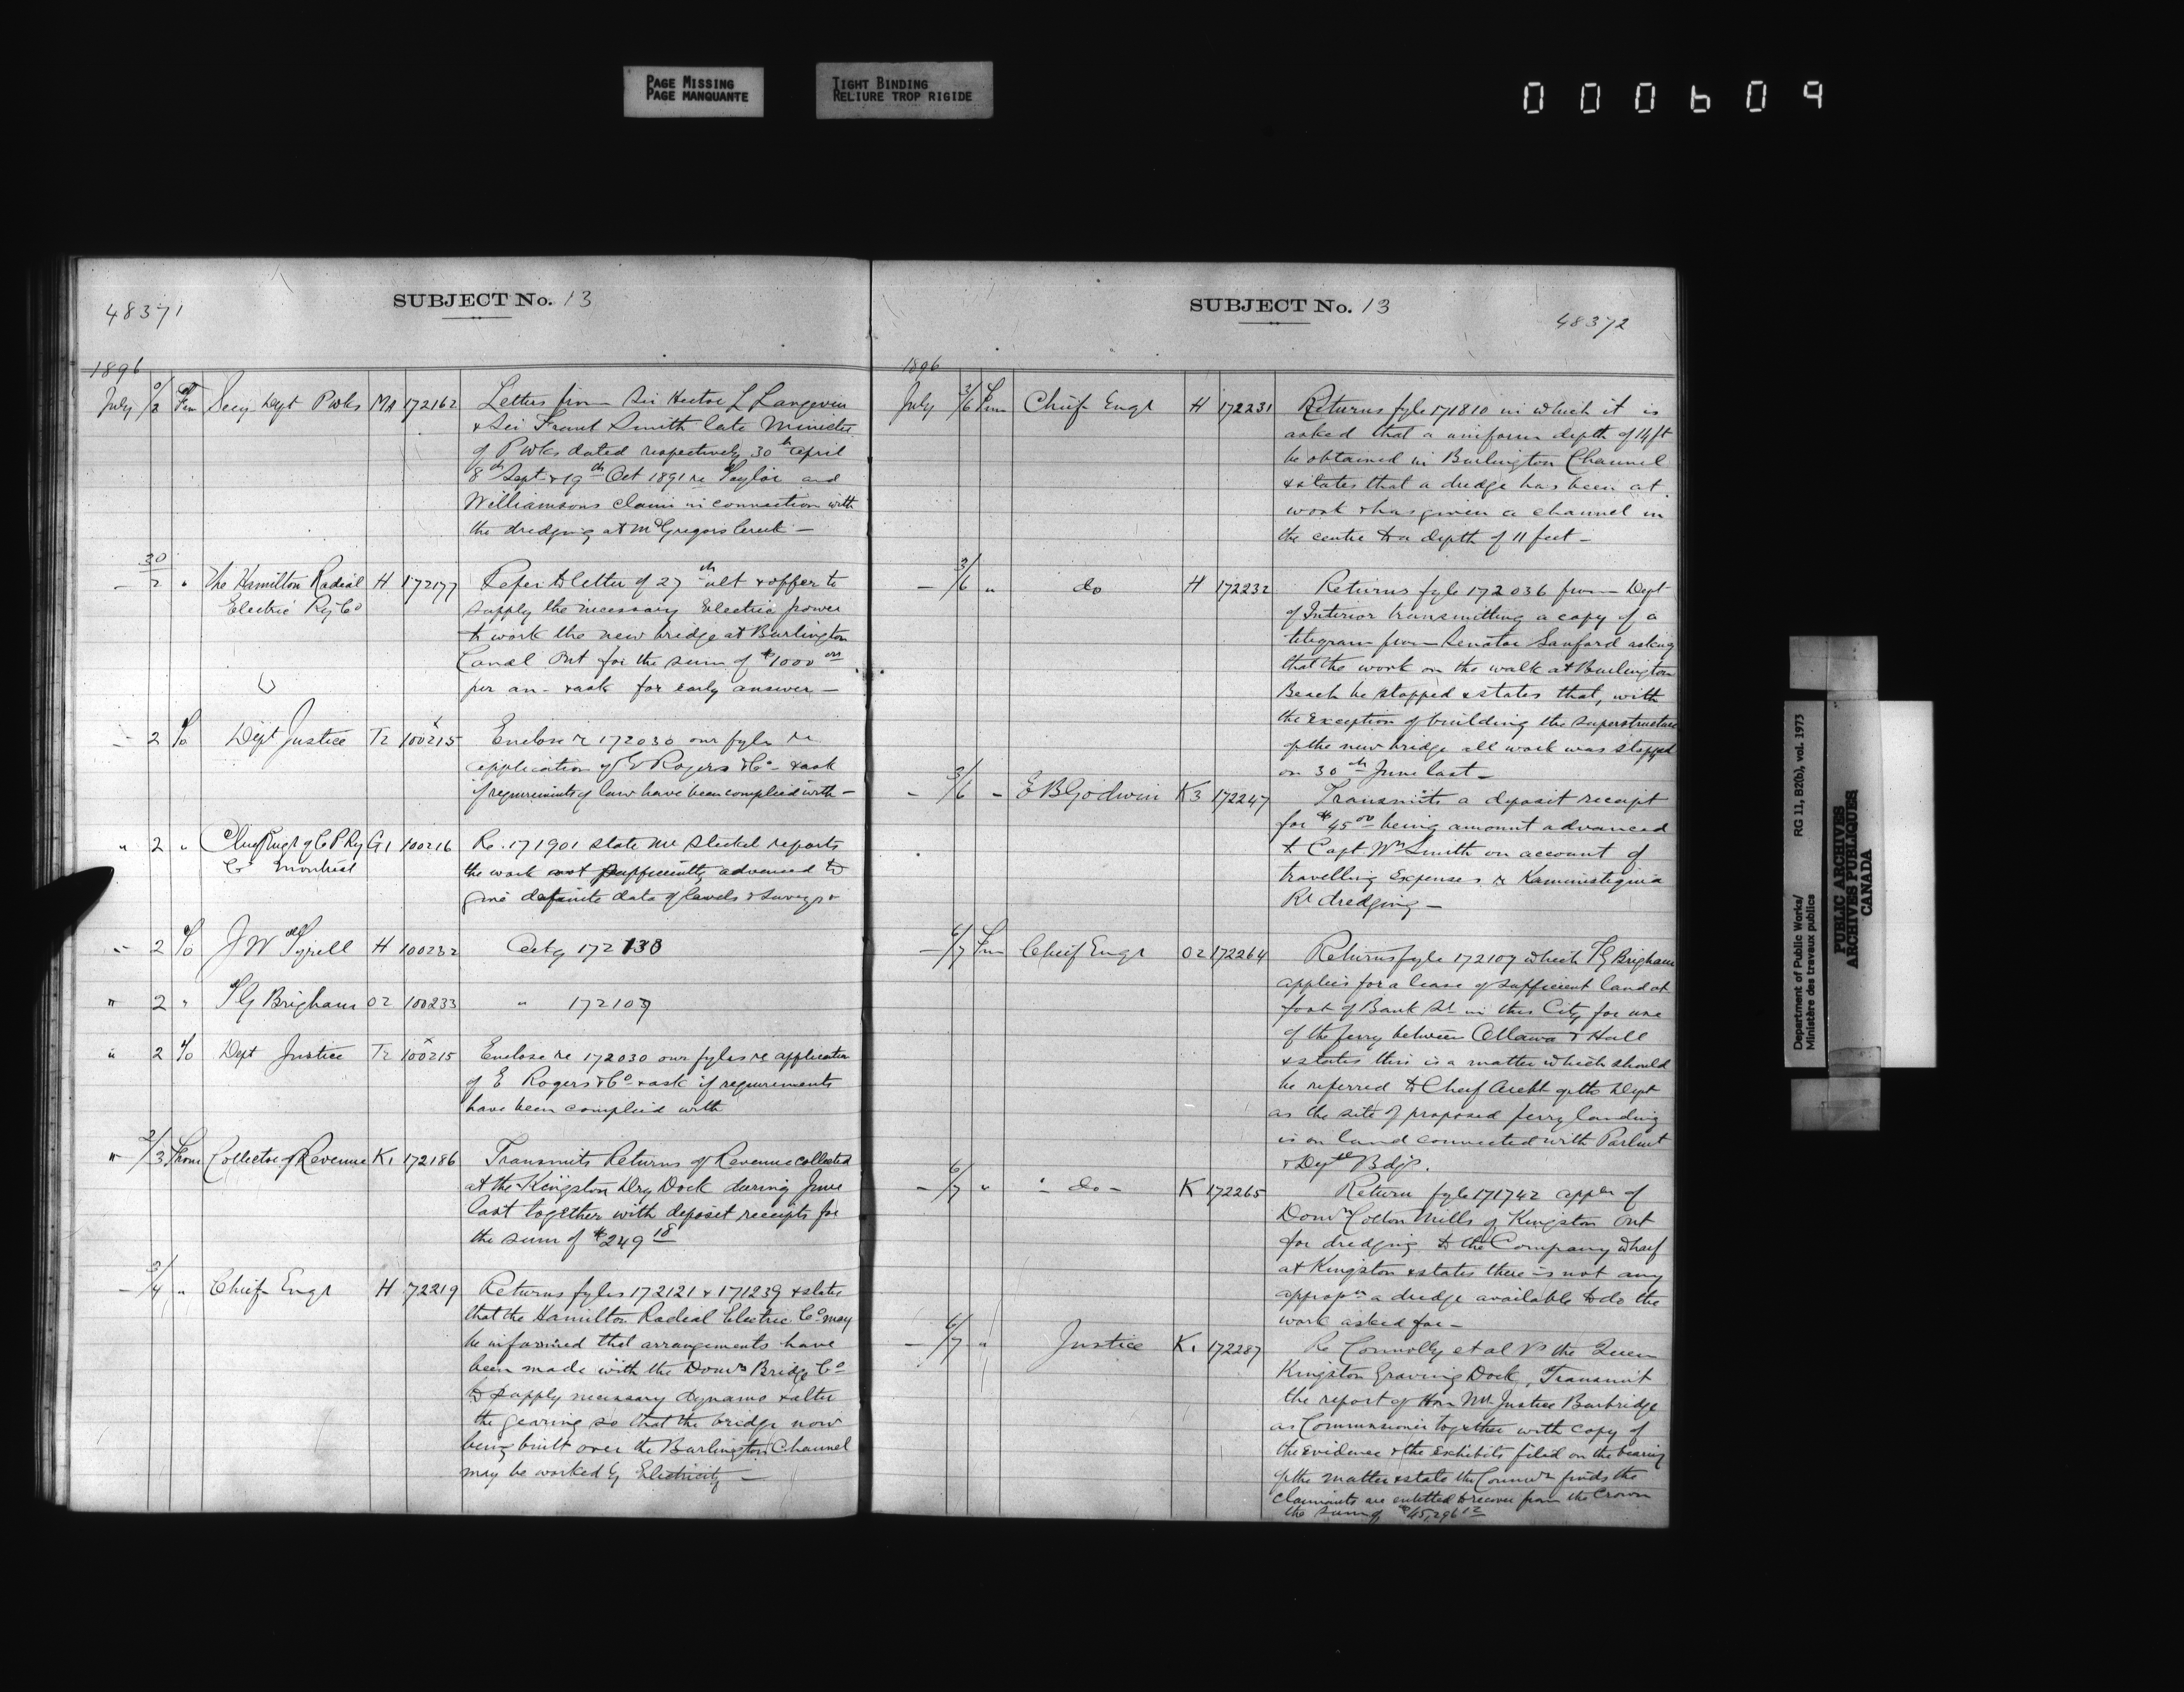 PAGE MISSING
PAGE MANQUANTE
TIGHT BINDING
RELIURE TROP RIGIDE
000609
48371
SUBJECT No. 13
1896
July 0/2 Fm Secy Dept P Wks MA 172162 Letters from Sir Hector L Langevin
& Sir Frank Smith late Minister
of P Wks dated respectively 30th April
8th Sept & 19th Oct 1891 re Taylor and
Williamsons claim in connection with
the dredging at McGregors Creek —
— 30/2 " The Hamilton Radial H 172177 Refer to letter of 27th ult & offer to
Electric Ry Co supply the necessary Electric power
to work the new bridge at Burlington
Canal Ont for the sum of $1000
per an - & ask for early answer —
— 2 To Dept Justice Tr 100215 Enclose re 172030 our fyles re
application of E Rogers & Co - & ask
if requirements of law have been complied with —
" 2 " Chief Engr of C P Ry G1 100216 Re. 171901 state Mr Steckel reports
Co Montreal the work not sufficiently advanced to
give definite data of levels & surveys
" 2 To J W Tyrrell H 100232 Ackg 172130
" 2 " T G Brigham O2 100233 " 172107
" 2 To Dept Justice Tr 100215 Enclose re 172030 our fyles re application
of E Rogers & Co - & ask if requirements
have been complied with
" 2/3 From Collector of Revenue K1 172186 Transmits Returns of Revenue collected
at the Kingston Dry Dock during June
last together with deposit receipts for
the sum of $249 18
— 2/4 " Chief Engr H 72219 Returns fyles 172121 & 171239 & states
that the Hamilton Radial Electric Co may
be informed that arrangements have
been made with the Domn Bridge Co
to supply necessary dynamo & alter
the gearing so that the bridge now
being built over the Burlington Channel
may be worked by Electricity —
SUBJECT No. 13
48372
1896
July 3/6 Fm Chief Engr H 172231 Returns fyle 171810 in which it is
asked that a uniform depth of 14 ft
be obtained in Burlington Channel
& states that a dredge has been at
work & has given a channel in
the centre to a depth of 11 feet —
— 3/6 " do H 172232 Returns fyle 172036 from Dept
of Interior transmitting a copy of a
telegram from Senator Sanford asking
that the work on the walk at Burlington
Beach be stopped & states that, with
the exception of building the superstructure
of the new bridge all work was stopped
on 30th June last —
- 3/6 - E B Godwin K3 172247 Transmits a deposit receipt
for $45 00 being amount advanced
to Capt Wm Smith on account of
travelling Expenses re Kaministiquia
Rr dredging —
— 6/7 Fm Chief Engr O2 172264 Returns fyle 172107 which T G Brigham
applies for a lease of sufficient land at
foot of Bank St in this City for use
of the ferry between Ottawa & Hull
& states this is a matter which should
be referred to Chief Archt of the Dept
as the site of proposed ferry landing
is on land connected with Parlmt
& Deptl Bdgs.
— 6/7 " - do - K 172265 Return fyle 171742 appln of
Domn Cotton Mills of Kingston Ont
for dredging to the Company wharf
at Kingston & states there is not any
appropn a dredge available to do the
work asked for —
— 6/7 " Justice K1 172287 Re Connolly et al Vs the Queen
Kingston Graving Dock, Transmit
the report of Hon Mr Justice Burbridge
as Commissioner together with copy of
the evidence & the exhibits filed on the hearing
of the matter & state the Commr finds the
claimants are entitled to recover from the Crown
the sum of $45,296 12
Department of Public Works/ RG 11, B2(b), vol. 1973
Ministère des travaux publics
PUBLIC ARCHIVES
ARCHIVES PUBLIQUES
CANADA